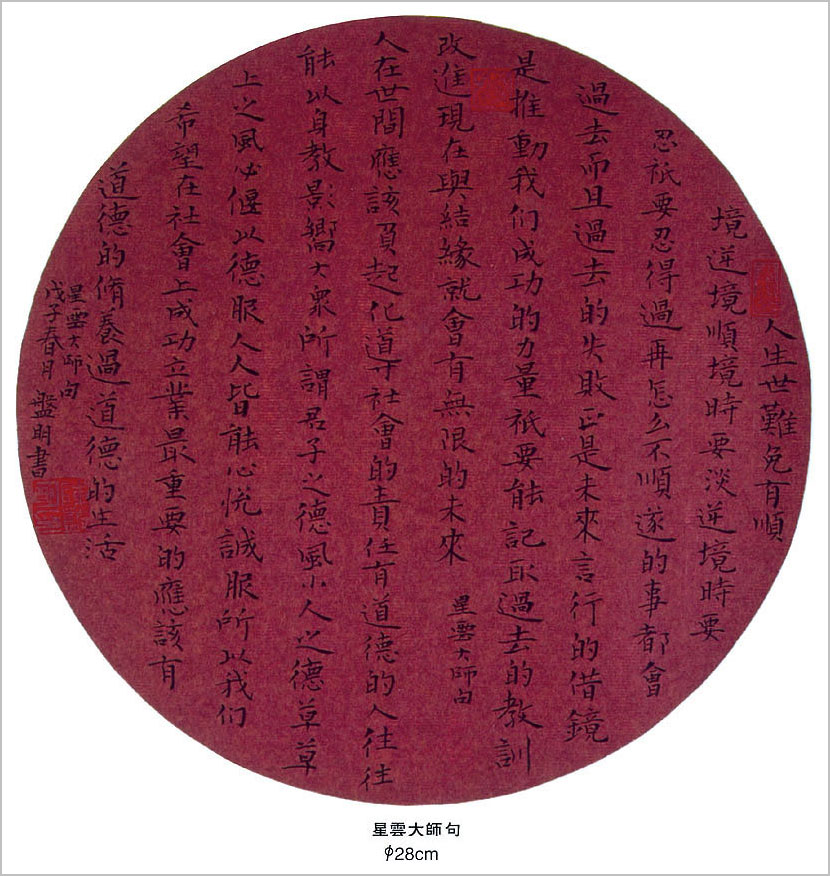 人生世難免有順
境逆境順境時要淡逆境時要
忍祇要忍得過再怎么不順遂的事都會
過去而且過去的失敗正是未來言行的借鏡
是推動我们成功的力量祇要能記取過去的教訓
改進現在與結緣就會有無限的未來
星雲大師句
人在世間應該負起化道于社會的責任有道德的人往往
能以身教影嚮大衆所謂君子之德風小人之德草草
上之風必偃以德服人人皆能心悅誠服所以我们
希望在社會上成功立業最重要的應該有
道德的脩養過道德的生活
星雲大師句
戊子春月 盤明書
星雲大師句
φ28cm